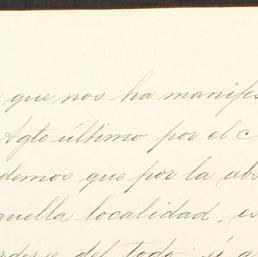 que nos ha manifes
Agto último por el c
demos que por la abs
quella localidad, es
del todo